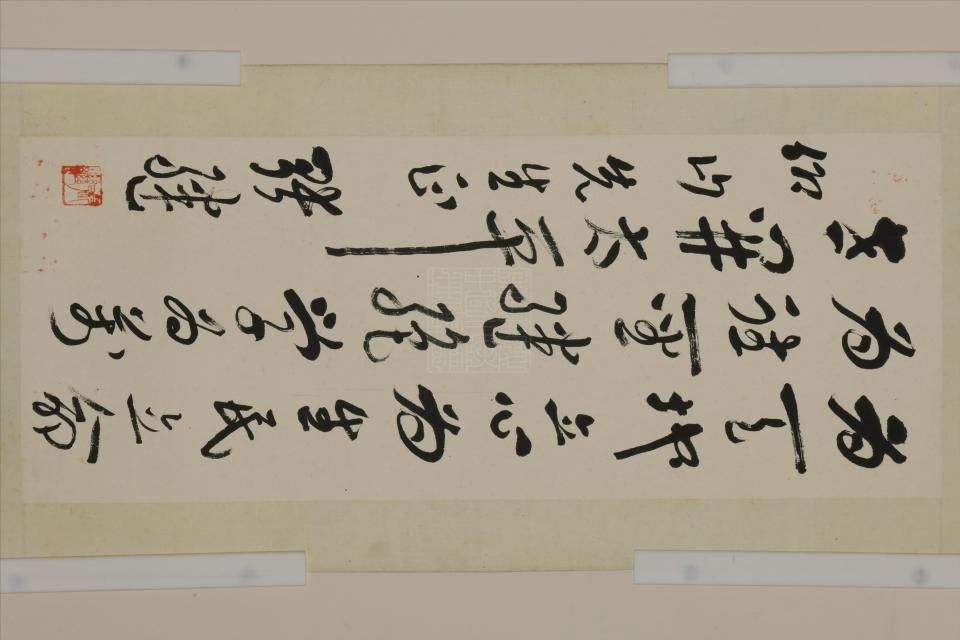 為天地立心為生民立命
為往聖繼絕學為萬
世開太平
先生正 張繼